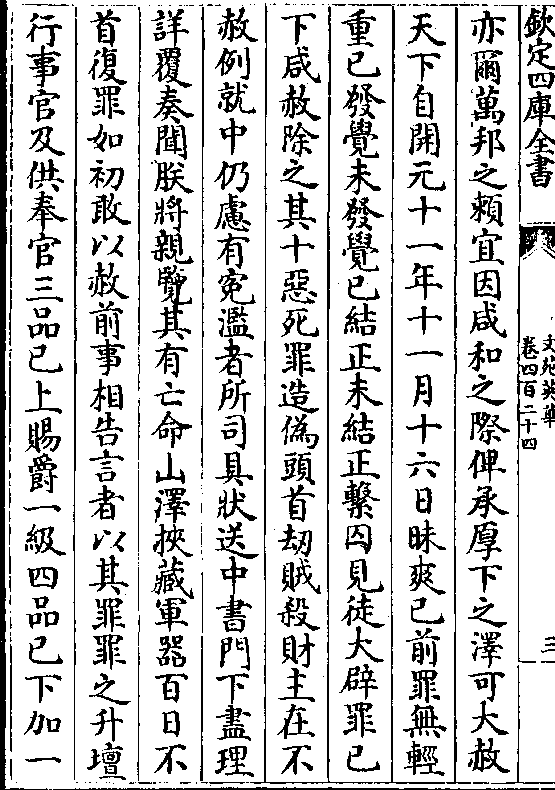 欽定四庫全書
文苑英華
卷四百二十四
三
亦爾萬邦之賴宜因咸和之際俾承厚下之澤可大赦
天下自開元十一年十一月十六日昧爽已前罪無輕
重已發覺未發覺已結正未結正繫囚見徒大辟罪已
下咸赦除之其十惡死罪造偽頭首劫賊殺財主在不
赦例就中仍慮有寃濫者所司具狀送中書門下盡理
詳覆奏聞朕將親覽其有亡命山澤挾藏軍器百日不
首復罪如初敢以赦前事相告言者以其罪罪之升壇
行事官及供奉官三品已上賜爵一級四品已下加一